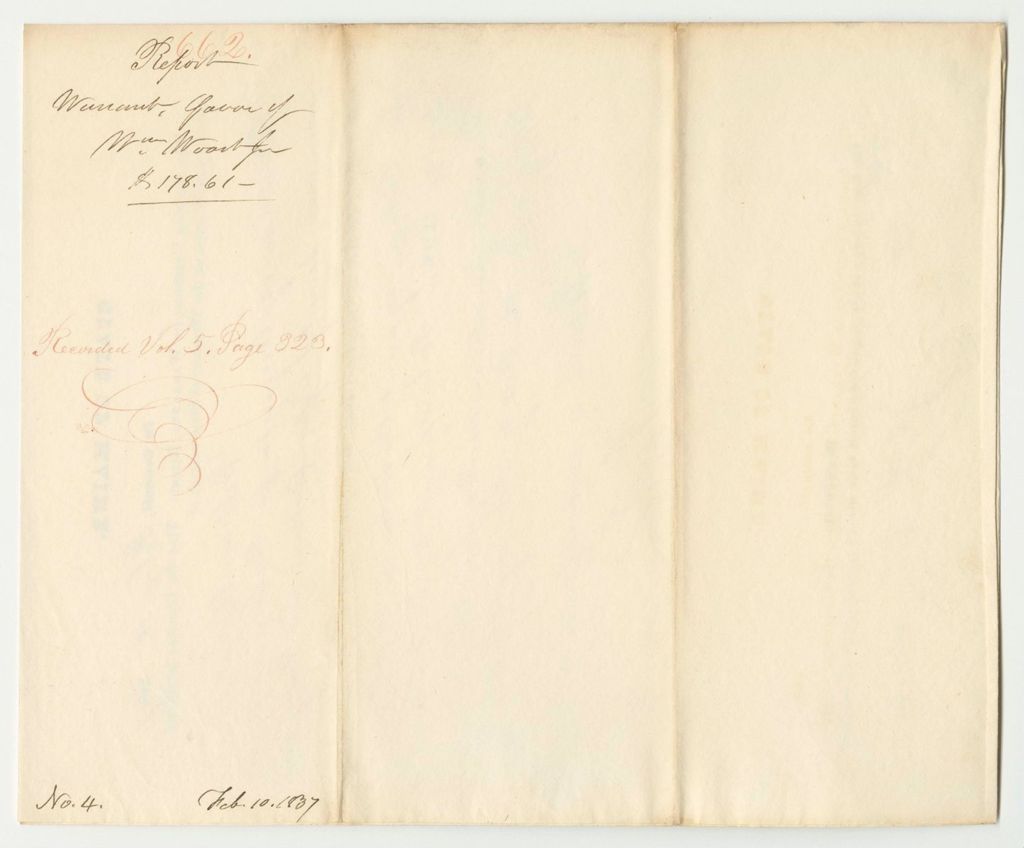 662.
Report
Warrant, favor of
Wm. Woart Jr
$178.61-
Recorded Vol. 5. Page 323.
No. 4.
Feb. 10. 1837